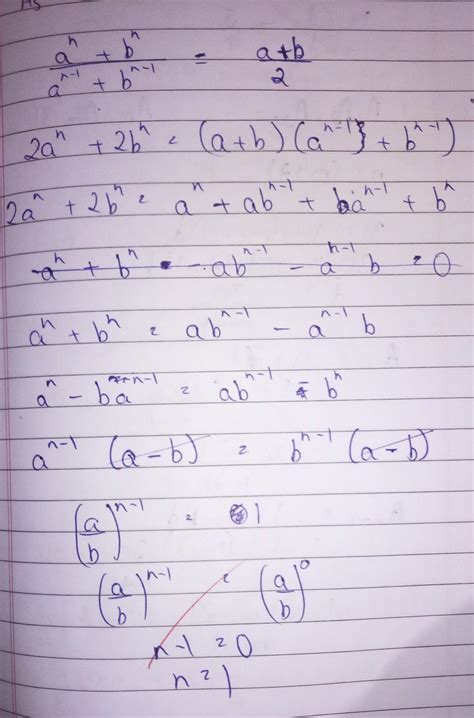 As
aⁿ + bⁿ / aⁿ⁻¹ + bⁿ⁻¹ = a+b / 2
2aⁿ + 2bⁿ = (a+b) (aⁿ⁻¹ + bⁿ⁻¹)
2aⁿ + 2bⁿ = aⁿ + abⁿ⁻¹ + baⁿ⁻¹ + bⁿ
aⁿ + bⁿ - abⁿ⁻¹ - aⁿ⁻¹ b = 0
aⁿ + bⁿ = abⁿ⁻¹ - aⁿ⁻¹ b
aⁿ - baⁿ⁻¹ = abⁿ⁻¹ - bⁿ
aⁿ⁻¹ (a-b) = bⁿ⁻¹ (a-b)
(a/b)ⁿ⁻¹ = 1
(a/b)ⁿ⁻¹ = (a/b)⁰
n-1 = 0
n = 1